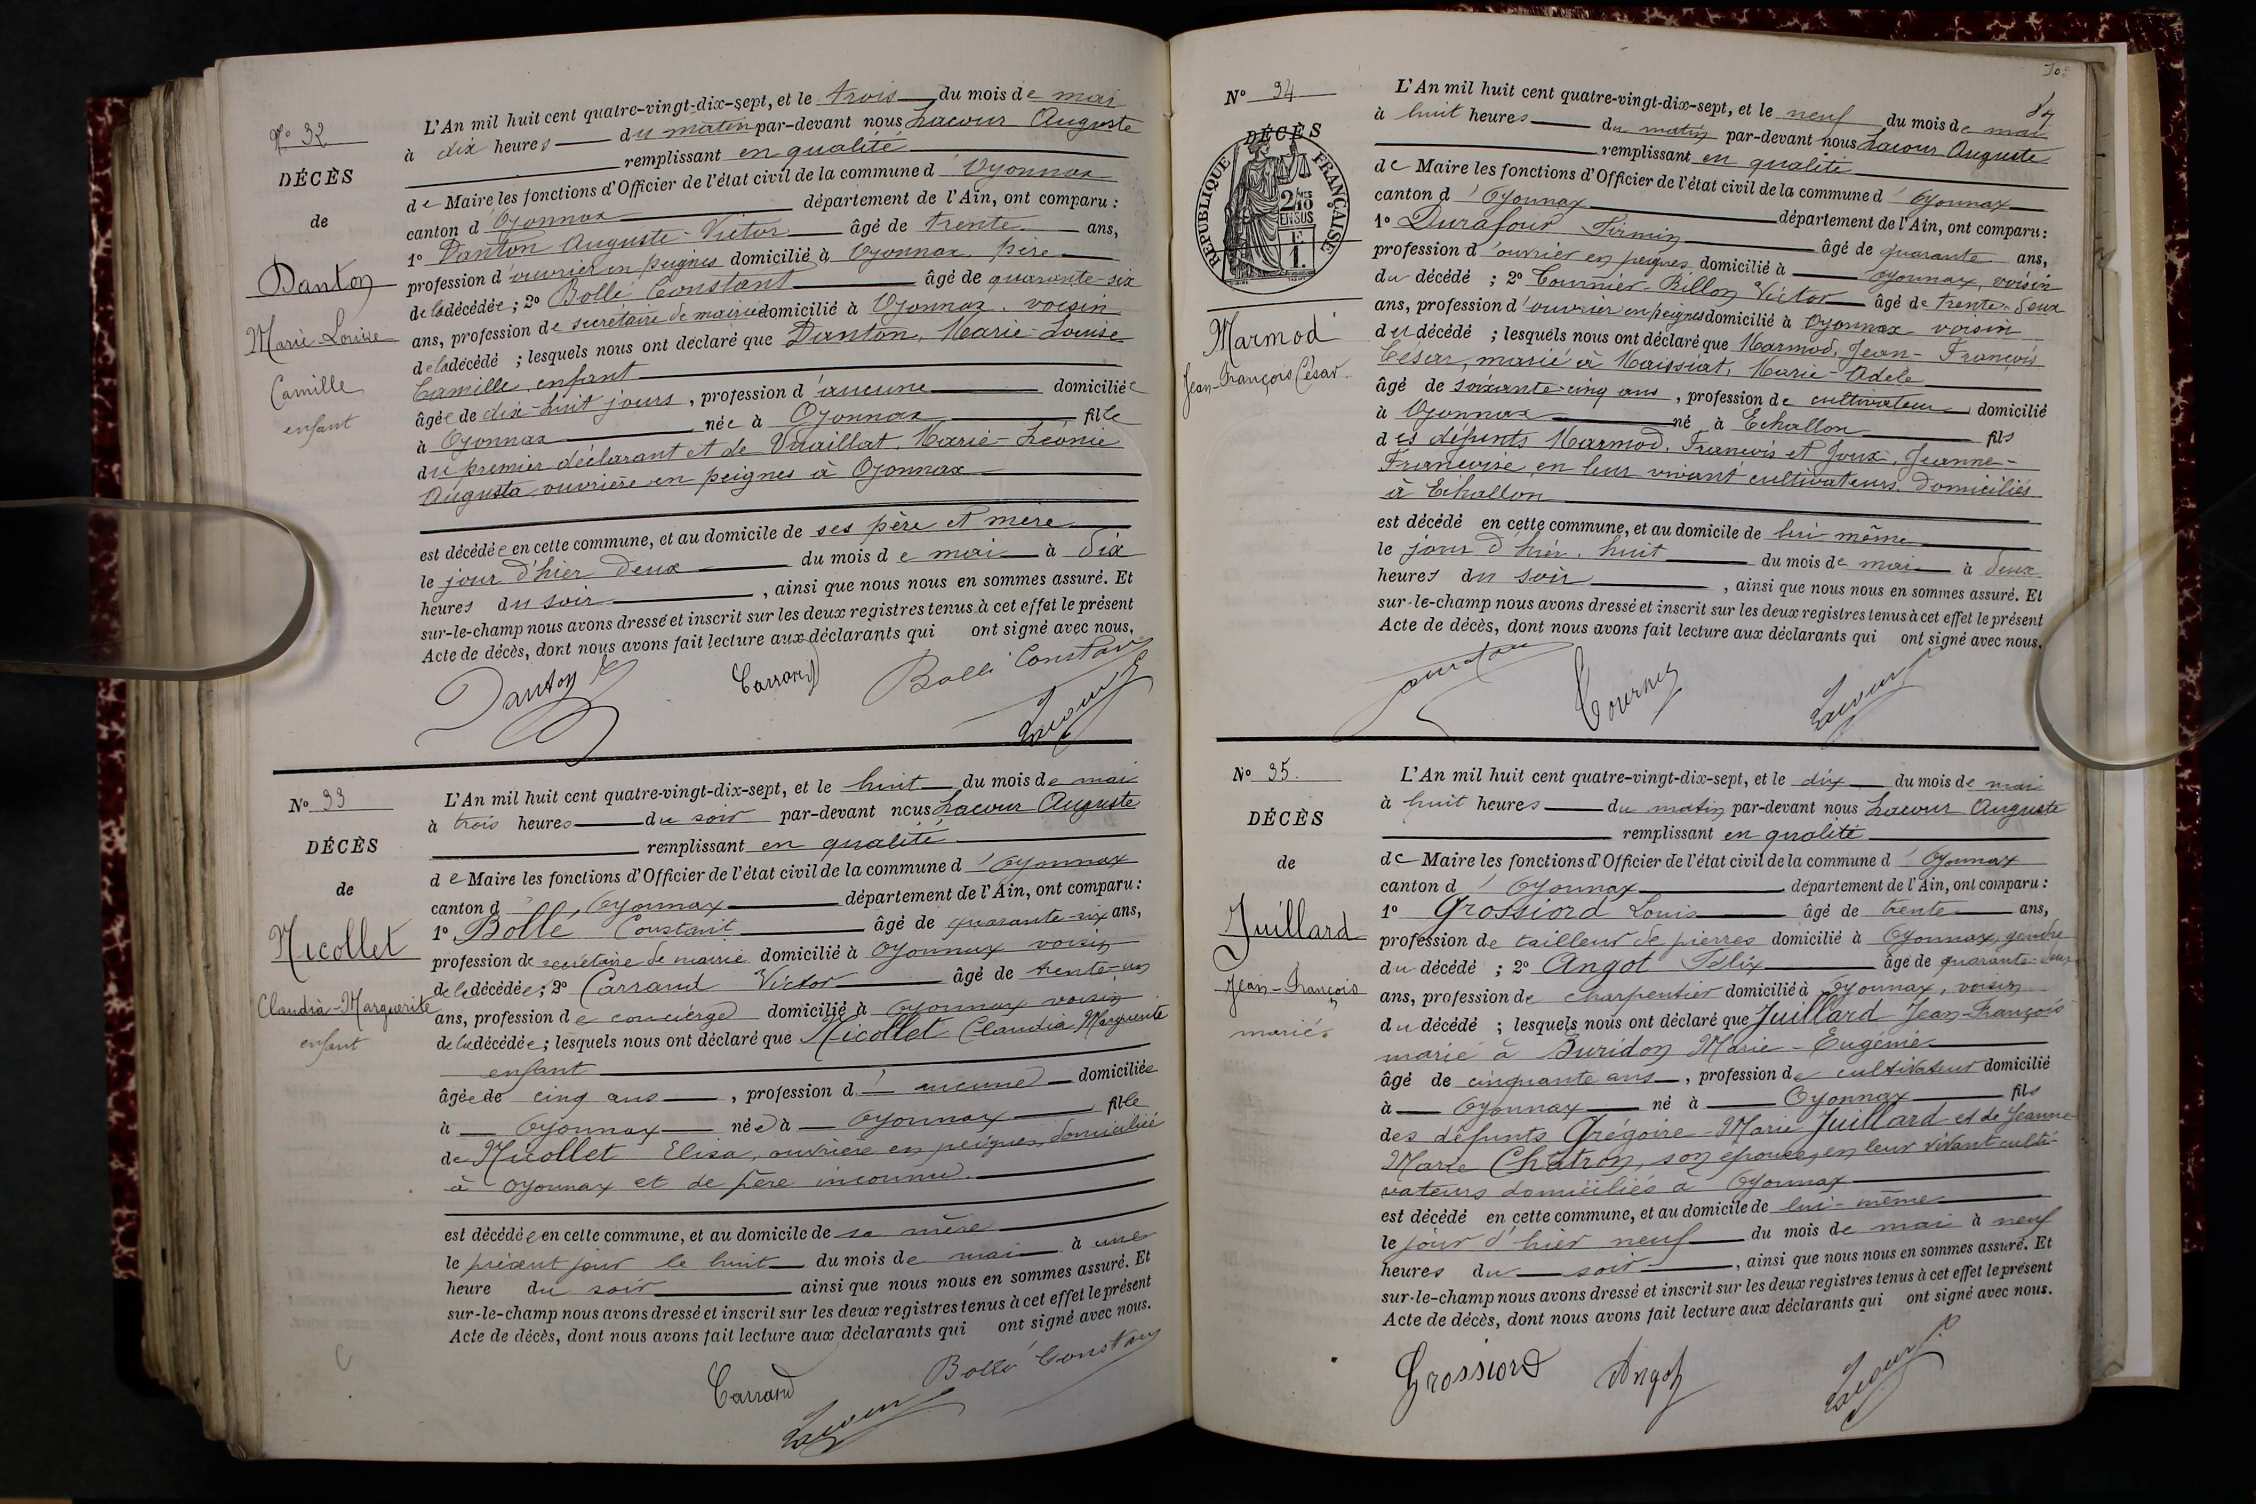 Nº 32
DÉCÈS
de
Danton
Marie-Louise
Camille
enfant
L'An mil huit cent quatre-vingt-dix-sept, et le trois du mois de mai
à dix heures du matin par-devant nous Lacour Auguste
remplissant en qualité
de Maire les fonctions d'Officier de l'état civil de la commune d'Oyonnax
canton d'Oyonnax département de l'Ain, ont comparu :
1º Danton Auguste-Victor âgé de trente ans,
profession d'ouvrier en peignes domicilié à Oyonnax père
de la décédée ; 2º Bollé Constant âgé de quarante-six
ans, profession de secrétaire de mairie domicilié à Oyonnax voisin
de la décédé ; lesquels nous ont déclaré que Danton, Marie-Louise
Camille enfant
âgée de dix-huit jours, profession d'aucune domiciliée
à Oyonnax née à Oyonnax fille
du premier déclarant et de Vuaillat, Marie-Léonie
Augusta ouvrière en peignes à Oyonnax
est décédée en cette commune, et au domicile de ses père et mère
le jour d'hier deux du mois de mai à dix
heures du soir, ainsi que nous nous en sommes assuré. Et
sur-le-champ nous avons dressé et inscrit sur les deux registres tenus à cet effet le présent
Acte de décès, dont nous avons fait lecture aux déclarants qui ont signé avec nous.
Danton Carrand Bollé Constant
Lacour
Nº 33
DÉCÈS
de
Nicollet
Claudia-Marguerite
enfant
L'An mil huit cent quatre-vingt-dix-sept, et le huit du mois de mai
à trois heures du soir par-devant nous Lacour Auguste
remplissant en qualité
de Maire les fonctions d'Officier de l'état civil de la commune d'Oyonnax
canton d'Oyonnax département de l'Ain, ont comparu :
1º Bollé Constant âgé de quarante-six ans,
profession de secrétaire de mairie domicilié à Oyonnax voisin
de la décédée ; 2º Carrand Victor âgé de trente-un
ans, profession de concierge domicilié à Oyonnax voisin
de la décédée ; lesquels nous ont déclaré que Nicollet Claudia Marguerite
enfant
âgée de cinq ans, profession d'aucune domiciliée
à Oyonnax née à Oyonnax fille
de Nicollet Elisa, ouvrière en peignes, domiciliée
à Oyonnax et de père inconnu.
est décédée en cette commune, et au domicile de sa mère
le présent jour le huit du mois de mai à une
heure du soir ainsi que nous nous en sommes assuré. Et
sur-le-champ nous avons dressé et inscrit sur les deux registres tenus à cet effet le présent
Acte de décès, dont nous avons fait lecture aux déclarants qui ont signé avec nous.
Carrand Bollé Constant
Lacour
Nº 34
DÉCÈS
RÉPUBLIQUE FRANÇAISE
2/10
EN SUS
E
1.
Marmod
Jean-François César
L'An mil huit cent quatre-vingt-dix-sept, et le neuf du mois de mai
à huit heures du matin par-devant nous Lacour Auguste
remplissant en qualité
de Maire les fonctions d'Officier de l'état civil de la commune d'Oyonnax
canton d'Oyonnax département de l'Ain, ont comparu :
1º Durafour Firmin âgé de quarante ans,
profession d'ouvrier en peignes domicilié à Oyonnax, voisin
du décédé ; 2º Tournier-Billon Victor âgé de trente-deux
ans, profession d'ouvrier en peignes domicilié à Oyonnax voisin
du décédé ; lesquels nous ont déclaré que Marmod, Jean-François
César, marié à Maissiat, Marie-Adèle
âgé de soixante-cinq ans, profession de cultivateur domicilié
à Oyonnax né à Echallon fils
des défunts Marmod, François et Joux, Jeanne-
Françoise en leur vivant cultivateurs domiciliés
à Echallon
est décédé en cette commune, et au domicile de lui même
le jour d'hier, huit du mois de mai à deux
heures du soir, ainsi que nous nous en sommes assuré. Et
sur-le-champ nous avons dressé et inscrit sur les deux registres tenus à cet effet le présent
Acte de décès, dont nous avons fait lecture aux déclarants qui ont signé avec nous.
Tournier Lacour
Nº 35.
DÉCÈS
de
Juillard
Jean-François
marié
L'An mil huit cent quatre-vingt-dix-sept, et le dix du mois de mai
à huit heures du matin par-devant nous Lacour Auguste
remplissant en qualité
de Maire les fonctions d'Officier de l'état civil de la commune d'Oyonnax
canton d'Oyonnax département de l'Ain, ont comparu :
1º Grossiord Louis âgé de trente ans,
profession de tailleur de pierres domicilié à Oyonnax, gendre
du décédé ; 2º Angot Félix âgé de quarante-deux
ans, profession de charpentier domicilié à Oyonnax, voisin
du décédé ; lesquels nous ont déclaré que Juillard Jean-François
marié à Buridon Marie-Eugénie
âgé de cinquante ans, profession de cultivateur domicilié
à Oyonnax né à Oyonnax fils
des défunts Grégoire-Marie Juillard et de Jeanne-
Marie Chatron, son épouse, en leur vivant culti-
vateurs domiciliés à Oyonnax
est décédé en cette commune, et au domicile de lui-même
le jour d'hier neuf du mois de mai à neuf
heures du soir, ainsi que nous nous en sommes assuré. Et
sur-le-champ nous avons dressé et inscrit sur les deux registres tenus à cet effet le présent
Acte de décès, dont nous avons fait lecture aux déclarants qui ont signé avec nous.
Grossiord Angot Lacour